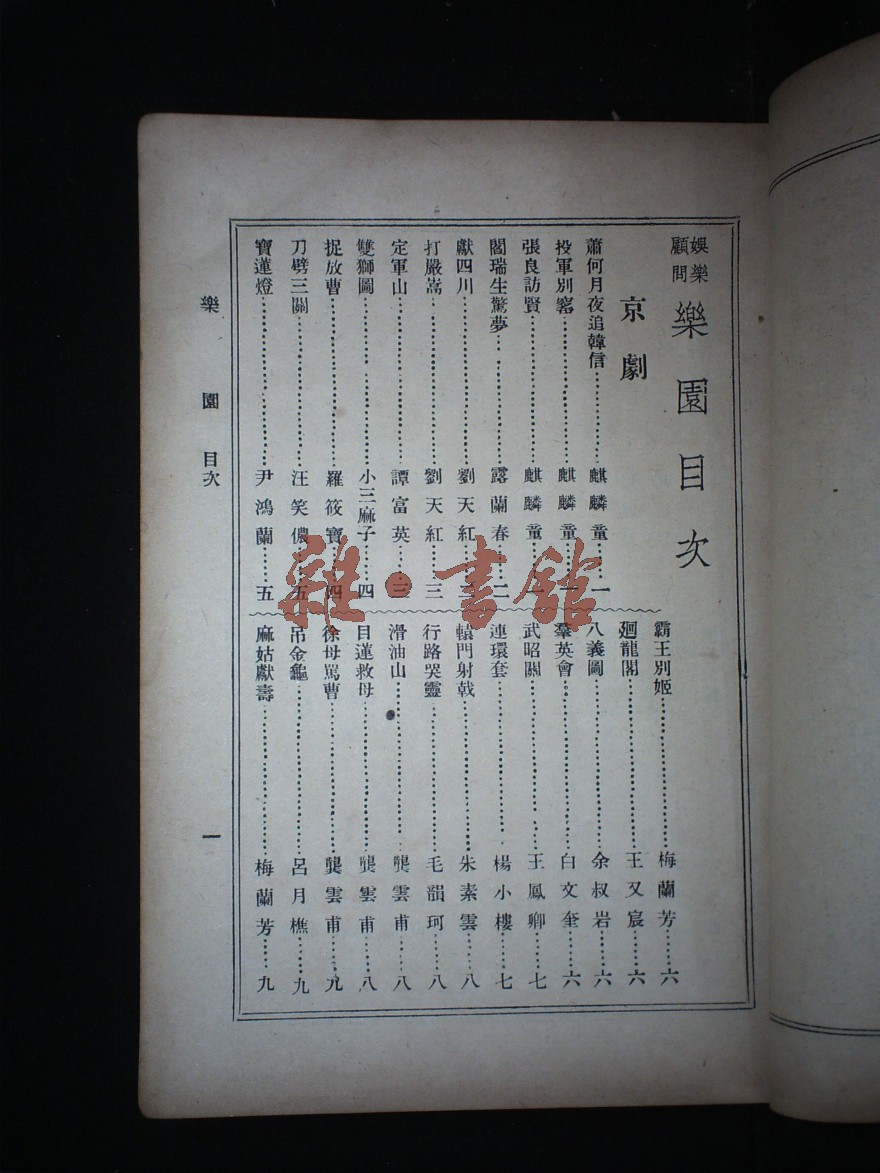 娛樂顧問 樂園目次
京劇
蕭何月夜追韓信 麒麟童 一
投軍別窰 麒麟童
張良訪賢 麒麟童
閻瑞生驚夢 露蘭春 二
獻四川 劉天紅
打嚴嵩 劉天紅 三
定軍山 譚富英 三
雙獅圖 小三麻子 四
捉放曹 羅筱寶 四
刀劈三關 汪笑儂 五
寶蓮燈 尹鴻蘭 五
霸王別姬 梅蘭芳 六
廻龍閣 王又宸 六
八義圖 余叔岩 六
羣英會 白文奎 六
武昭關 王鳳卿 七
連環套 楊小樓 七
轅門射戟 朱素雲 八
行路哭靈 毛韻珂 八
滑油山 龔雲甫 八
目蓮救母 龔雲甫 八
徐母罵曹 龔雲甫 九
吊金龜 呂月樵 九
麻姑獻壽 梅蘭芳 九
樂園 目次 一
雜·書館